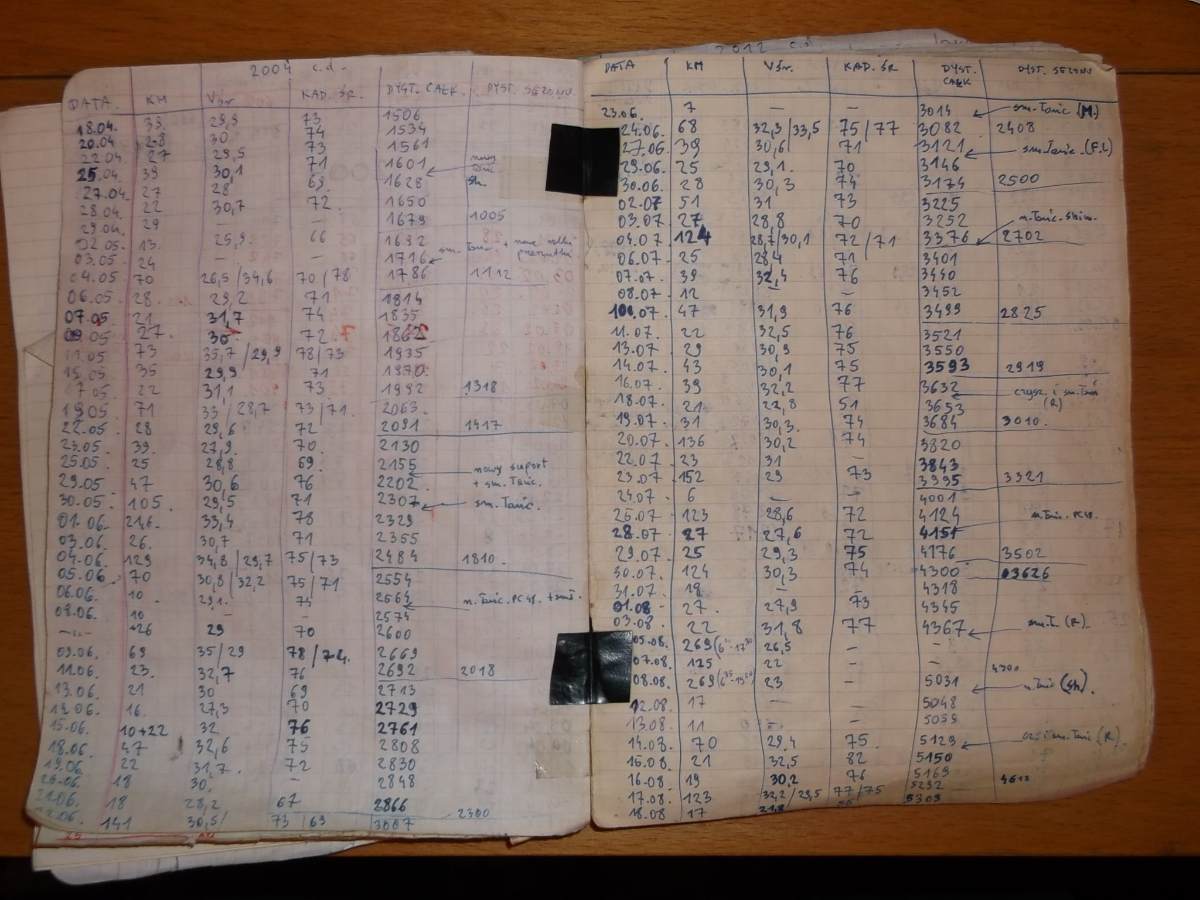 2004 c.d.
DATA. KM Vśr KAD. ŚR. DYST. CAŁK. DYST. SEZONU.
18.04. 33 29,9 73 1506
20.04 28 30 74 1534
22.04 27 29,5 73 1561
25.04 39 30,1 71 1601 nowy
27.04 27 28 69 1628 sh.
28.04 22 30,7 72. 1650
29.04. 29 – – 1679 1005
02.05 13. 25,9. 66 1692
03.05 24 – – 1716
04.05 70 26,5/34,6 70/78 1786 1112
06.05 28. 29,2 71 1814
07.05. 21 31,7 74 1835
09.05 27. 30 72. 1862
11.05 73 35,7/29,9 78/73 1935
15.05 35 29,9 71 1970
17.05 22 31,1 73 1992 1318
19.05 71 33/28,7 73/71. 2063
22.05 28 29,6 72 2091 1417
23.05 39 27,9 70. 2130
25.05 25 28,8 69. 2155 nowy suport
29.05 47 30,6 76 2202 + sm. Tańc.
30.05 105. 29,5 71 2307 sm. Tańc.
01.06. 21,6. 33,4 78 2329
03.06 26. 30,7 71 2355
04.06. 129 34,8/29,7 75/73 2484 1810
05.06. 70 30,8/32,2 75/71 2554
06.06. 10 29,1 74 2564
08.06. 10 – – 2574
26 29 70 2600
09.06. 69 35/29 78/74. 2669
11.06. 23. 32,7 76 2692 2018
13.06. 21 30 69 2713
14.06. 16. 27,3 70 2729
15.06. 10+22 32 76 2761
18.06. 47 32,6 75 2808
19.06. 22 31,7. 72 2830
18 30. – 2848
18 28,2 67 2866
141 30,5/ 73/69 3007 2300
2012 c.d.
DATA KM Vśr. KAD. ŚR DYST. CAŁK DYST. SEZONU
23.06. 7 – – 3014 sm. Tańc (M.)
24.06. 68 32,3/33,5 75/77 3082 2408
27.06. 39 30,6 71 3121 sm. Tańc. (F.L)
29.06. 25 29,1. 70 3146
30.06. 28 30,3 74 3174 2500
02.07 51 31 73 3225
03.07 27. 28,8 70 3252 n. Tańc. Shim.
04.07 124 28,7/30,1 72/71 3376 2702
06.07 25 28,4 71 3401
07.07. 39 32,4 76 3440
08.07. 12 – 3452
10.07. 47 31,9 76 3499 2825
11.07. 22 32,5 76 3521
13.07 29 30,9 75 3550
14.07. 43 30,1 75 3593 2919
16.07. 39 32,2 77 3632 czyszc. i sm. Tańc (R)
18.07. 21 22,8 51 3653
19.07. 31 30,3. 74 3684 3010.
20.07. 136 30,2 74 3820
22.07. 23 31 – 3843
23.07. 152 29 73 3995 3321
24.07. 6 – – 4001
25.07. 123 28,6 72 4124 n. Tańc. PC48.
28.07. 27 27,6 72 4151
29.07. 25 29,3 75 4176 3502
30.07. 124 30,3 74 4300 03626
31.07. 18 – – 4318
01.08. 27. 27,9 73 4345
03.08. 22 31,8 77 4367 sm. T. (R).
05.08. 269 26,5 –
07.08. 125 22 – –
08.08. 269 23 – 5031 n. Tańc (Sh).
12.08. 17 – – 5048
13.08. 11 – – 5059
14.08. 70 29,4 75. 5129
15.08. 21 32,5 82 5150
16.08. 19 30,2 76 5169
17.08. 123 32,2/29,5 77/75 5292 4612
18.08. 17 5309